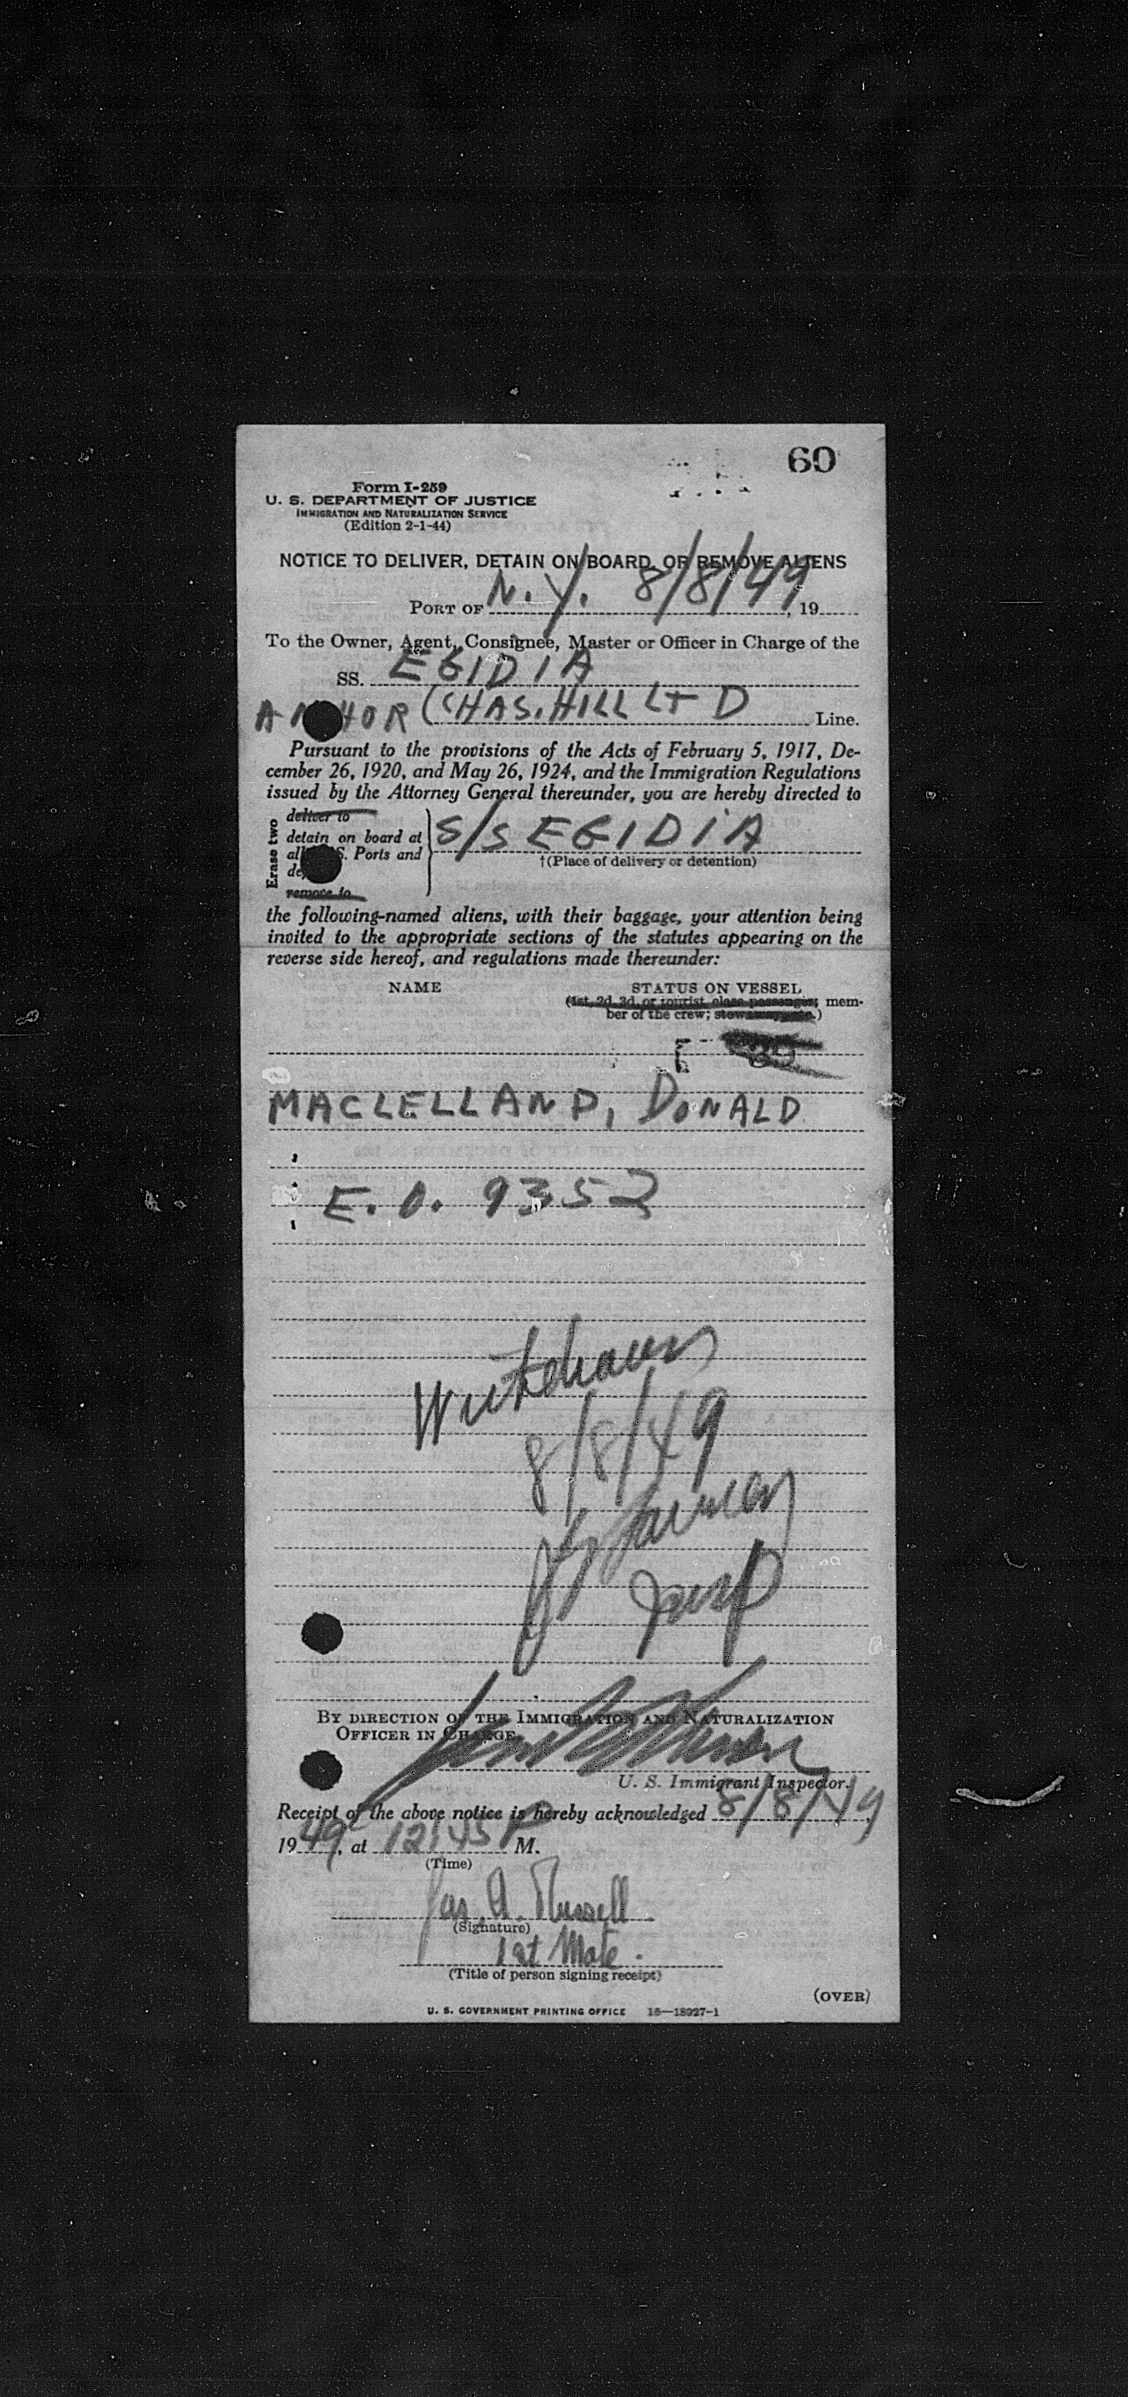 60
Form I-259
U. S. DEPARTMENT OF JUSTICE
IMMIGRATION AND NATURALIZATION SERVICE
(Edition 2-1-44)
NOTICE TO DELIVER, DETAIN ON BOARD, OR REMOVE ALIENS
PORT OF N.Y. 8/8/49, 19
To the Owner, Agent, Consignee, Master or Officer in Charge of the
SS. EGIDIA
ANCHOR (CHAS. HILL LTD Line.
Pursuant to the provisions of the Acts of February 5, 1917, De-
cember 26, 1920, and May 26, 1924, and the Immigration Regulations
issued by the Attorney General thereunder, you are hereby directed to
Erase two
deliver to
detain on board at
all U.S. Ports and
remove to
S/S EGIDIA
†(Place of delivery or detention)
the following-named aliens, with their baggage, your attention being
invited to the appropriate sections of the statutes appearing on the
reverse side hereof, and regulations made thereunder:
NAME STATUS ON VESSEL
(1st, 2d, 3d, or tourist class passenger; mem-
ber of the crew; stowaway, etc.)
MACLELLAND, DONALD
E. O. 9352
Withdrawn
8/8/49
Insp
BY DIRECTION OF THE IMMIGRATION AND NATURALIZATION
OFFICER IN CHARGE.
U. S. Immigrant Inspector.
Receipt of the above notice is hereby acknowledged 8/8/49
1949, at 12:45 P M.
(Time)
Jas. A. Russell
(Signature)
1st Mate.
(Title of person signing receipt)
(OVER)
U. S. GOVERNMENT PRINTING OFFICE 16—18927-1